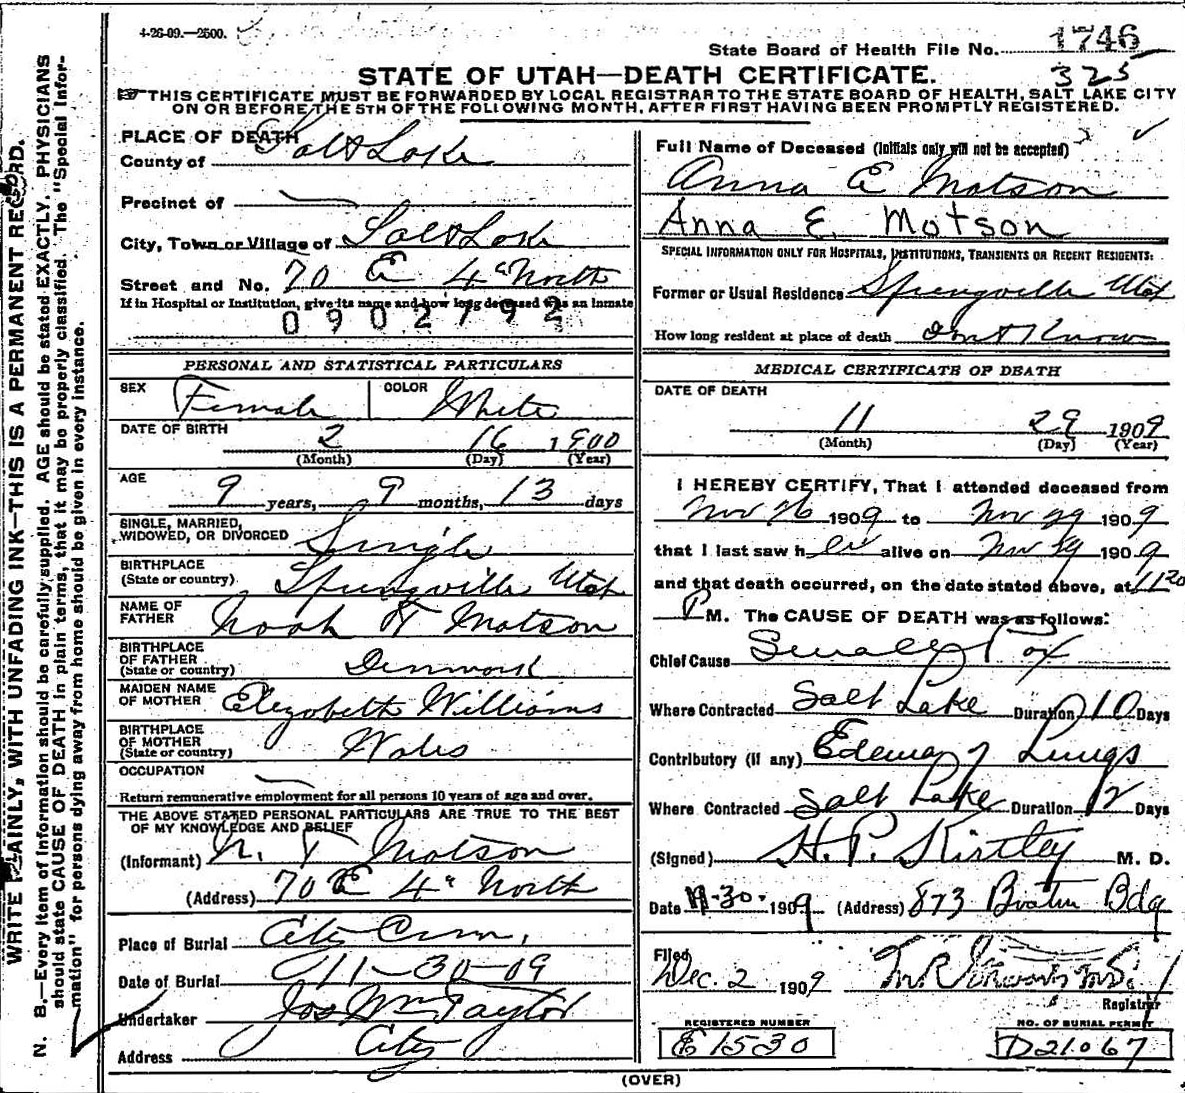 4-26-09.—2500.
State Board of Health File No. 1746
325
STATE OF UTAH—DEATH CERTIFICATE.
THIS CERTIFICATE MUST BE FORWARDED BY LOCAL REGISTRAR TO THE STATE BOARD OF HEALTH, SALT LAKE CITY
ON OR BEFORE THE 5TH OF THE FOLLOWING MONTH, AFTER FIRST HAVING BEEN PROMPTLY REGISTERED.
PLACE OF DEATH
County of Salt Lake
Precinct of
City, Town or Village of Salt Lake
Street and No. 70 E 4th North
If in Hospital or Institution, give its name and how long deceased was an inmate
0902792
PERSONAL AND STATISTICAL PARTICULARS
SEX Female COLOR White
DATE OF BIRTH 2 16 1900
(Month) (Day) (Year)
AGE 9 years, 9 months, 13 days
SINGLE, MARRIED,
WIDOWED, OR DIVORCED Single
BIRTHPLACE
(State or country) Springville Utah
NAME OF
FATHER Noah T Motson
BIRTHPLACE
OF FATHER
(State or country) Denmark
MAIDEN NAME
OF MOTHER Elizabeth Williams
BIRTHPLACE
OF MOTHER
(State or country) Wales
OCCUPATION
Return remunerative employment for all persons 10 years of age and over.
THE ABOVE STATED PERSONAL PARTICULARS ARE TRUE TO THE BEST
OF MY KNOWLEDGE AND BELIEF
(Informant) N. T Motson
(Address) 70 E 4th North
Place of Burial City Cem.
Date of Burial 11-30-09
Undertaker Jos Wm Taylor
Address City
Full Name of Deceased (Initials only will not be accepted)
Anna E Motson
Anna E. Motson
SPECIAL INFORMATION ONLY FOR HOSPITALS, INSTITUTIONS, TRANSIENTS OR RECENT RESIDENTS:
Former or Usual Residence Springville Utah
How long resident at place of death Dont Know
MEDICAL CERTIFICATE OF DEATH
DATE OF DEATH
11 29 1909
(Month) (Day) (Year)
I HEREBY CERTIFY, That I attended deceased from
Nov 26 1909 to Nov 29 1909
that I last saw her alive on Nov 29 1909
and that death occurred, on the date stated above, at 11 20
P M. The CAUSE OF DEATH was as follows:
Chief Cause Small Pox
Where Contracted Salt Lake Duration 10 Days
Contributory (if any) Edema of Lungs
Where Contracted Salt Lake Duration 2 Days
(Signed) H. P. Kirtley M. D.
Date 11-30-1909 (Address) 873 Boston Bdg
Filed
Dec. 2 1909
Registrar
REGISTERED NUMBER
E 1530
NO. OF BURIAL PERMIT
D21067
(OVER)
WRITE PLAINLY, WITH UNFADING INK—THIS IS A PERMANENT RECORD.
N. B.—Every item of information should be carefully supplied. AGE should be stated EXACTLY. PHYSICIANS
should state CAUSE OF DEATH in plain terms, that it may be properly classified. The "Special Infor-
mation" for persons dying away from home should be given in every instance.